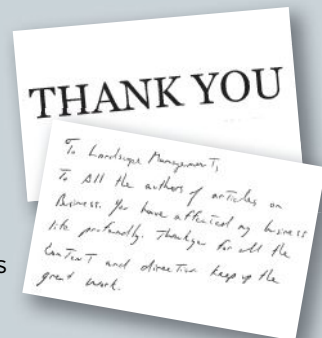 THANK YOU
To Landscape Management,
To All the authors of articles on
Business. You have affected my business
life profoundly. Thankyou for all the
Content and direction keep up the
great work.
s